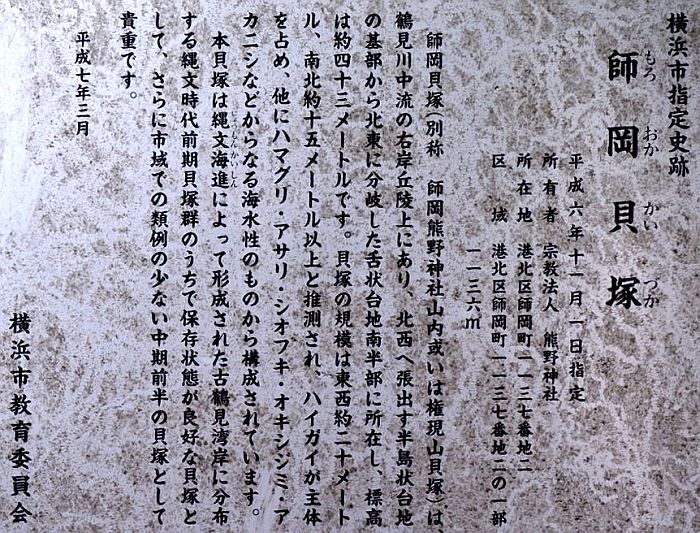 横浜市指定史跡
師岡貝塚
もろ おか かい づか
平成六年十一月一日指定
所有者 宗教法人 熊野神社
所在地 港北区師岡町一一三七番地二
区域 港北区師岡町一一三七番地二の一部
一一三六㎡
師岡貝塚(別称 師岡熊野神社山内或いは権現山貝塚)は、
鶴見川中流の右岸丘陵上にあり、北西へ張出す半島状台地
の基部から北東に分岐した舌状台地南半部に所在し、標高
は約四十三メートルです。貝塚の規模は東西約二十メート
ル、南北約十五メートル以上と推測され、ハイガイが主体
を占め、他にハマグリ・アサリ・シオフキ・オキシジミ・ア
カニシなどからなる海水性のものから構成されています。
本貝塚は縄文海進によって形成された古鶴見湾岸に分布
じょうもんかいしん
する縄文時代前期貝塚群のうちで保存状態が良好な貝塚と
して、さらに市域での類例の少ない中期前半の貝塚として
貴重です。
平成七年三月
横浜市教育委員会